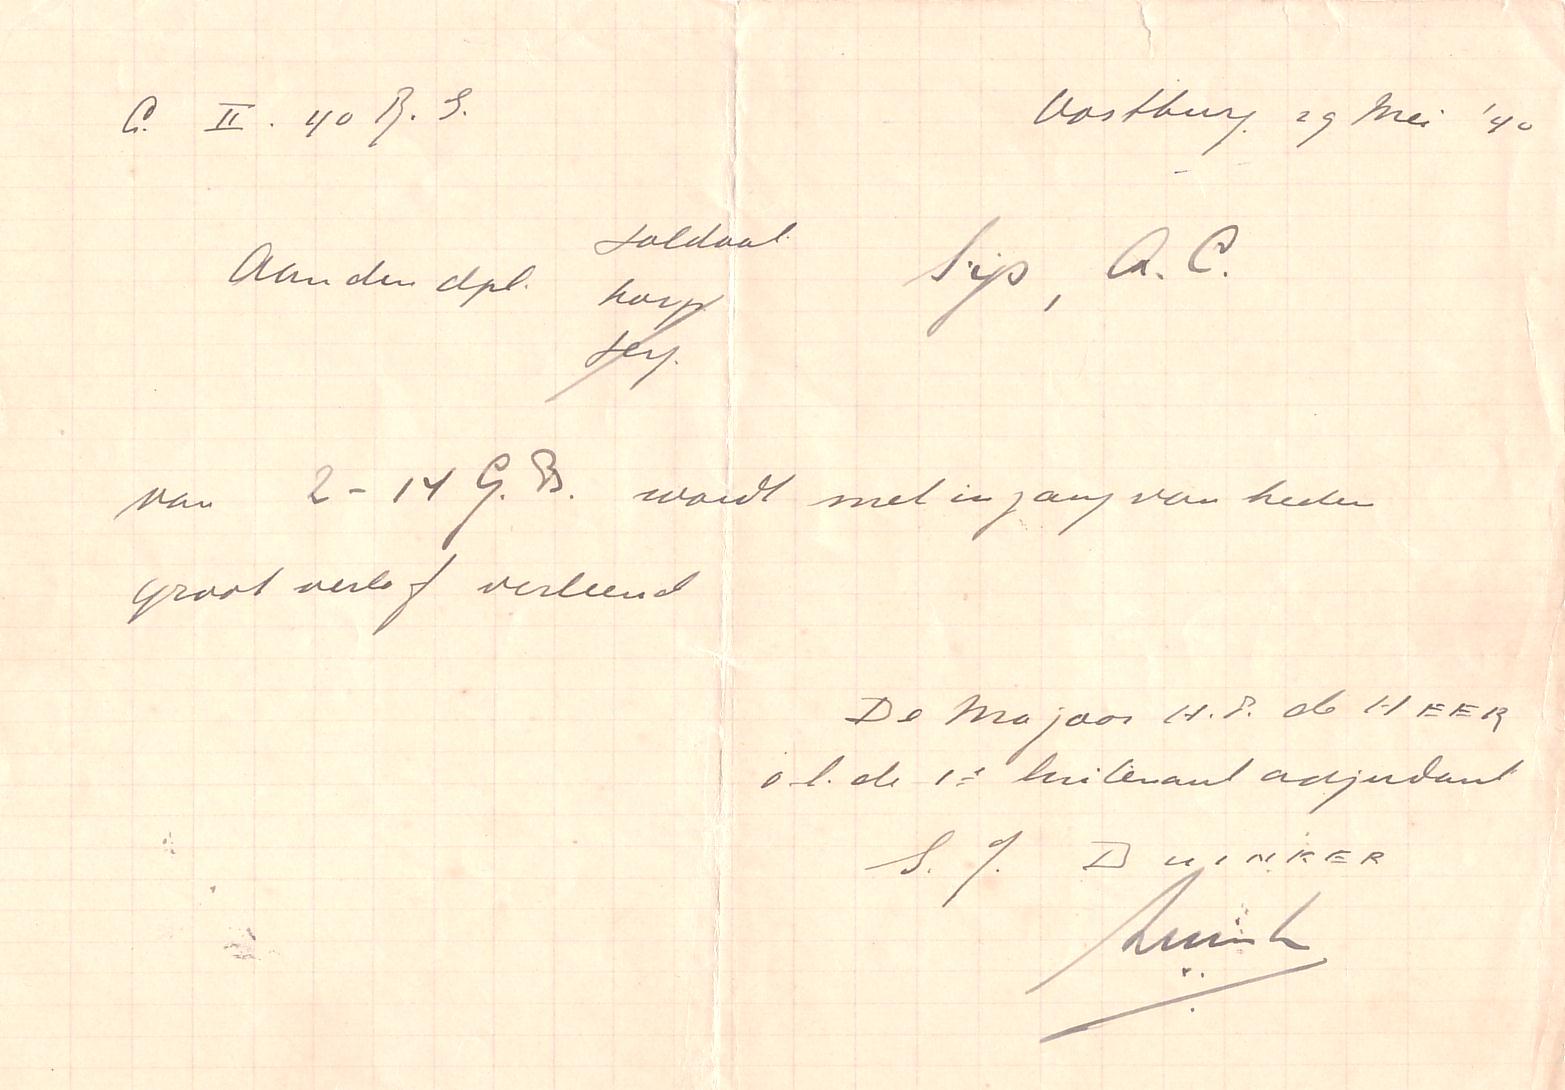 C. II. 40 R. I.
Oostburg 29 Mei '40
Aan den dpl. soldaat Sijs, A. C.
korp
serg.
van 2-14 G. B. wordt met ingang van heden
groot verlof verleend
De Majoor H. P. de HEER
o l. de 1e luitenant adjudant
S. J. DUINKER